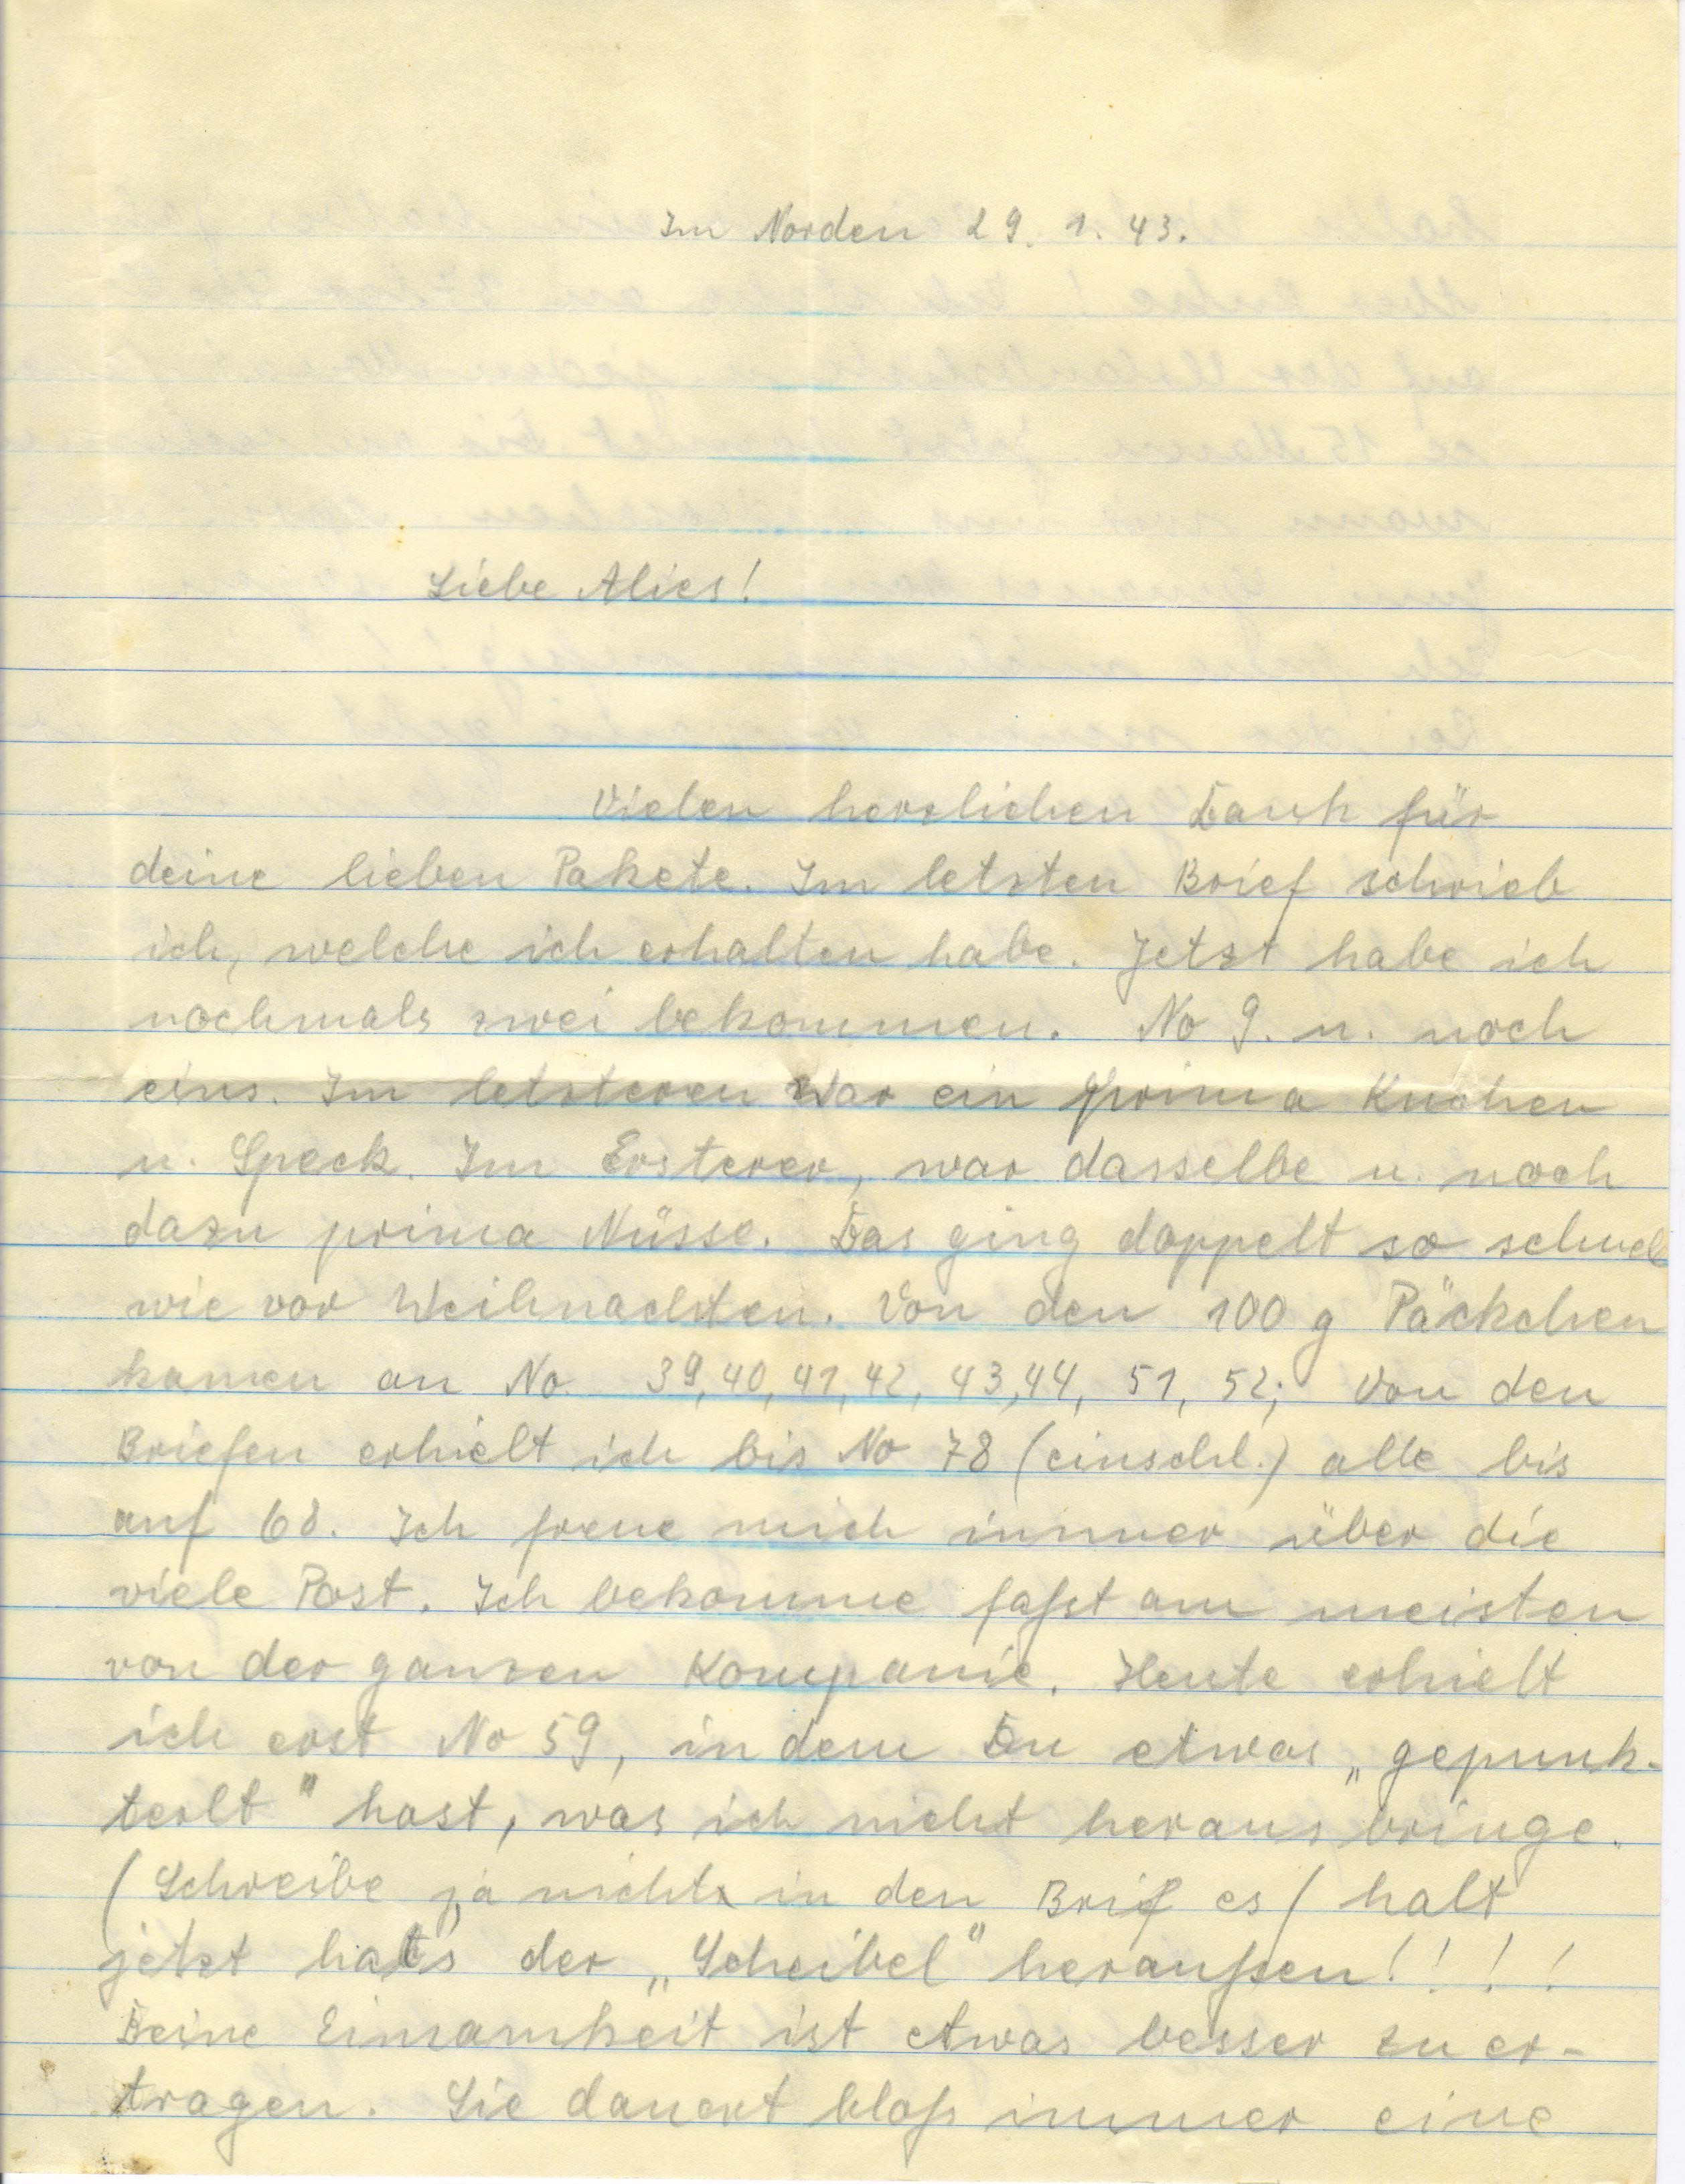 Im Norden 29. 1. 43.
Liebe Alies!
Vielen herzlichen Dank für
deine lieben Pakete. Im letzten Brief schrieb
ich, welche ich erhalten habe. Jetzt habe ich
nochmals zwei bekommen. No 9. u. noch
eins. Im letzteren war ein prima Kuchen
u. Speck. Im Ersterer, war dasselbe u. noch
dazu prima Nüsse. Das ging doppelt so schnell
wie vor Weihnachten. Von den 100 g Päckchen
kamen an No. 39, 40, 41, 42, 43, 44, 51, 52; Von den
Briefen erhielt ich bis No 78 (einschl.) alle bis
auf 68. Ich freue mich immer über die
viele Post. Ich bekomme faßt am meisten
von der ganzen Kompanie. Heute erhielt
ich erst No 59, in dem Du etwas „gepunk-
terlt" hast, was ich nicht heraus bringe.
(Schreibe ja nichts in den Brif es) halt
jetzt hat's der „Scheibel" heraußen!!!!
Deine Einsamkeit ist etwas besser zu er-
tragen. Sie dauert bloß immer eine